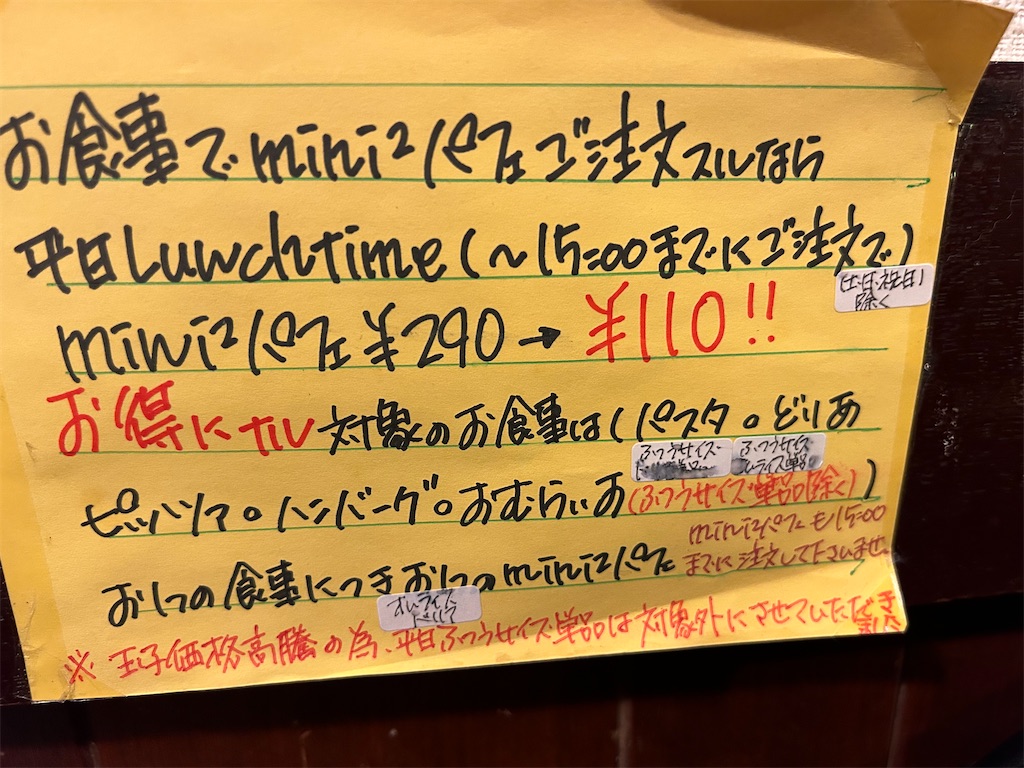 お食事でmini²パフェご注文スルなら
平日Lunchtime(~15:00までにご注文で)
(土・日・祝日)
除く
mini²パフェ¥290→¥110!!
お得にナル対象のお食事は(パスタ。どりあ
ふつうサイズ
ふつうサイズ
ライス単品
ピッツァ。ハンバーグ。おむらいあ(ふつうサイズ単品除く))
お1つの食事につきお1つのmini²パフェ
mini²パフェも15:00
までに注文して下さいませ
オムライス
ドリア
※玉子価格高騰の為、平日ふつうサイズ単品は対象外にさせていただきます